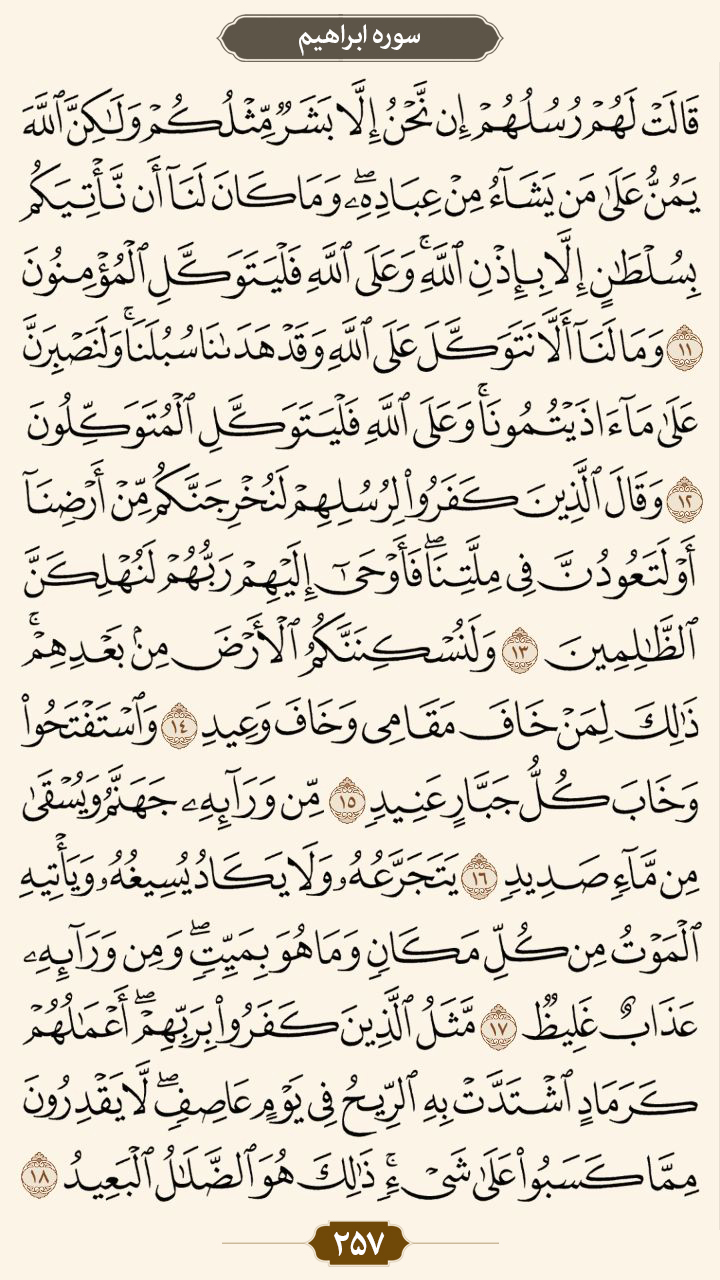 سوره ابراهیم
قَالَتْ لَهُمْ رُسُلُهُمْ إِن نَّحْنُ إِلَّا بَشَرٌ مِّثْلُكُمْ وَلَـٰكِنَّ ٱللَّهَ
يَمُنُّ عَلَىٰ مَن يَشَآءُ مِنْ عِبَادِهِۦۖ وَمَا كَانَ لَنَآ أَن نَّأْتِيَكُم
بِسُلْطَـٰنٍ إِلَّا بِإِذْنِ ٱللَّهِۚ وَعَلَى ٱللَّهِ فَلْيَتَوَكَّلِ ٱلْمُؤْمِنُونَ
١١ وَمَا لَنَآ أَلَّا نَتَوَكَّلَ عَلَى ٱللَّهِ وَقَدْ هَدَىٰنَا سُبُلَنَاۚ وَلَنَصْبِرَنَّ
عَلَىٰ مَآ ءَاذَيْتُمُونَاۚ وَعَلَى ٱللَّهِ فَلْيَتَوَكَّلِ ٱلْمُتَوَكِّلُونَ
١٢ وَقَالَ ٱلَّذِينَ كَفَرُوا۟ لِرُسُلِهِمْ لَنُخْرِجَنَّكُم مِّنْ أَرْضِنَآ
أَوْ لَتَعُودُنَّ فِى مِلَّتِنَاۖ فَأَوْحَىٰٓ إِلَيْهِمْ رَبُّهُمْ لَنُهْلِكَنَّ
ٱلظَّـٰلِمِينَ ١٣ وَلَنُسْكِنَنَّكُمُ ٱلْأَرْضَ مِنۢ بَعْدِهِمْۚ
ذَٰلِكَ لِمَنْ خَافَ مَقَامِى وَخَافَ وَعِيدِ ١٤ وَٱسْتَفْتَحُوا۟
وَخَابَ كُلُّ جَبَّارٍ عَنِيدٍ ١٥ مِّن وَرَآئِهِۦ جَهَنَّمُ وَيُسْقَىٰ
مِن مَّآءٍ صَدِيدٍ ١٦ يَتَجَرَّعُهُۥ وَلَا يَكَادُ يُسِيغُهُۥ وَيَأْتِيهِ
ٱلْمَوْتُ مِن كُلِّ مَكَانٍ وَمَا هُوَ بِمَيِّتٍۖ وَمِن وَرَآئِهِۦ
عَذَابٌ غَلِيظٌ ١٧ مَّثَلُ ٱلَّذِينَ كَفَرُوا۟ بِرَبِّهِمْۖ أَعْمَـٰلُهُمْ
كَرَمَادٍ ٱشْتَدَّتْ بِهِ ٱلرِّيحُ فِى يَوْمٍ عَاصِفٍۖ لَّا يَقْدِرُونَ
مِمَّا كَسَبُوا۟ عَلَىٰ شَىْءٍۚ ذَٰلِكَ هُوَ ٱلضَّلَـٰلُ ٱلْبَعِيدُ ١٨
۲۵۷